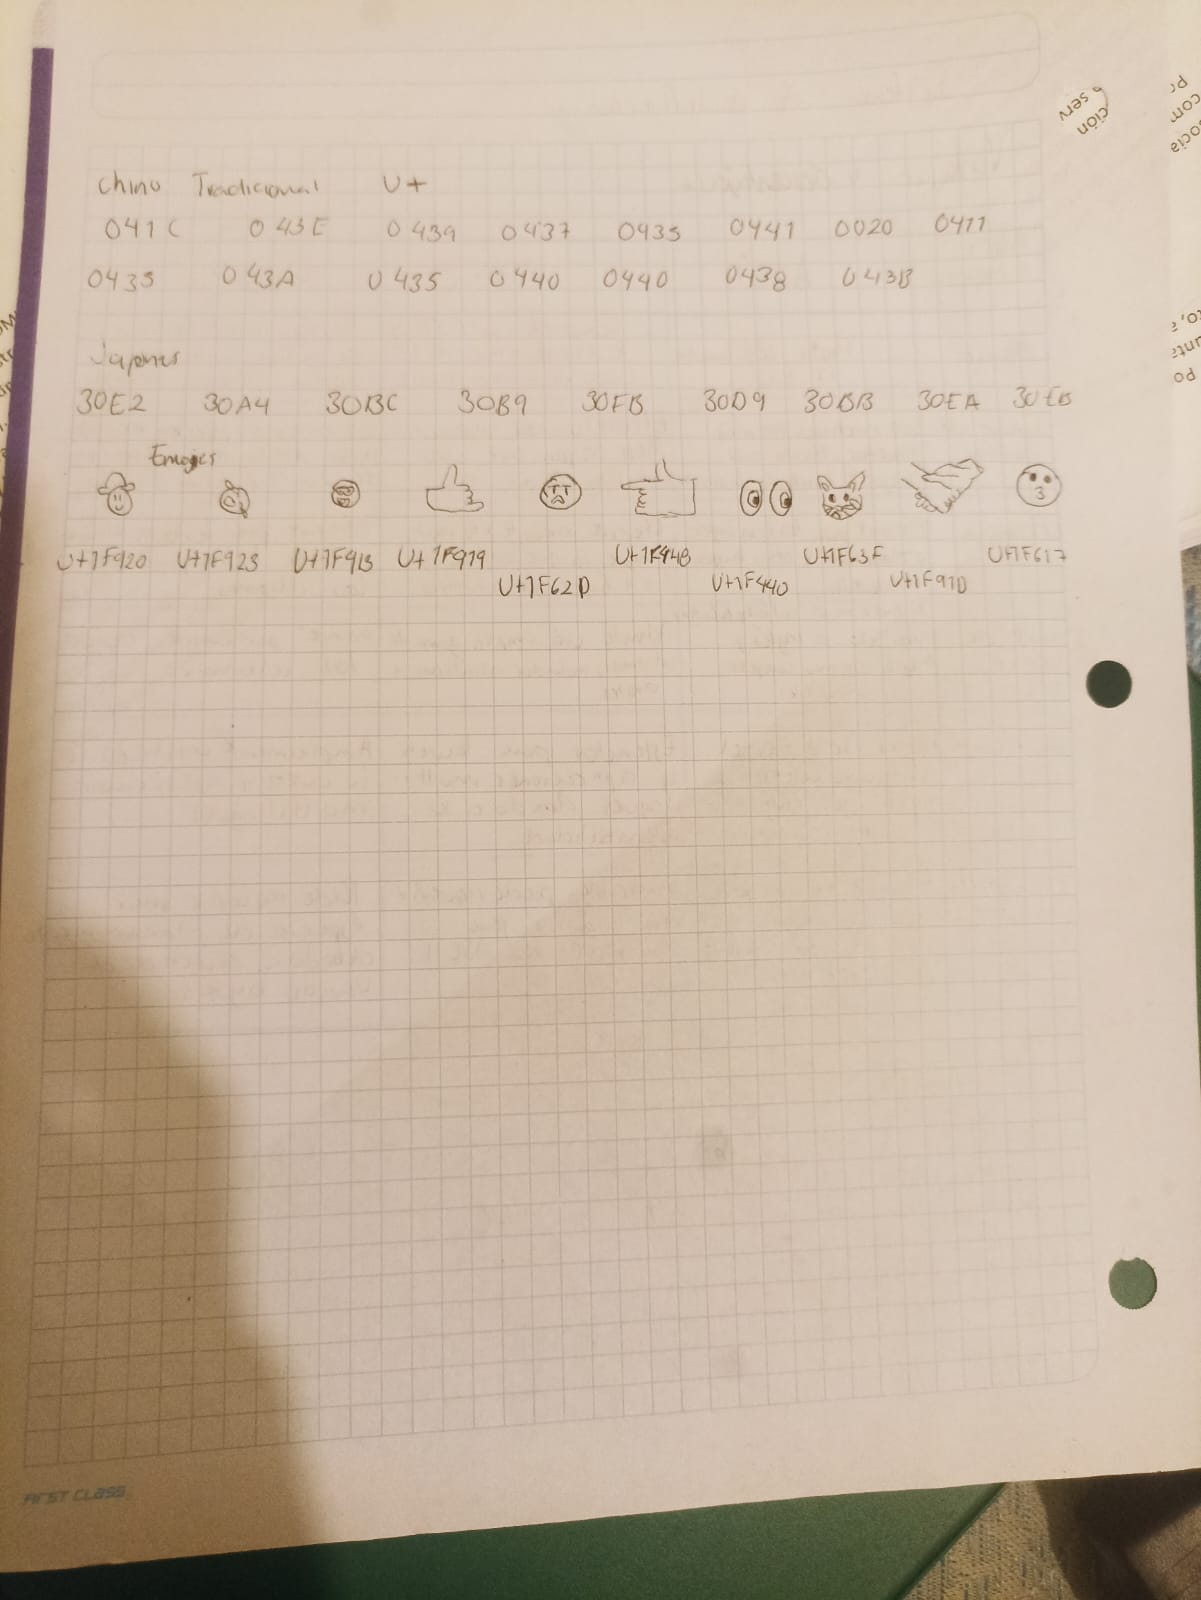 Chino Tradicional U+
041C 043E 0439 0437 0435 0441 0020 0411
0435 043A 0435 0440 0440 0438 043B
Japones
30E2 30A4 30BC 30B9 30FB 30D9 30BB 30EA 30EB
Emojes
U+1F920 U+1F923 U+1F913 U+1F919 U+1F62D U+1F448 U+1F440 U+1F63F U+1F91D U+1F617
FIRST CLASS
ción
serv